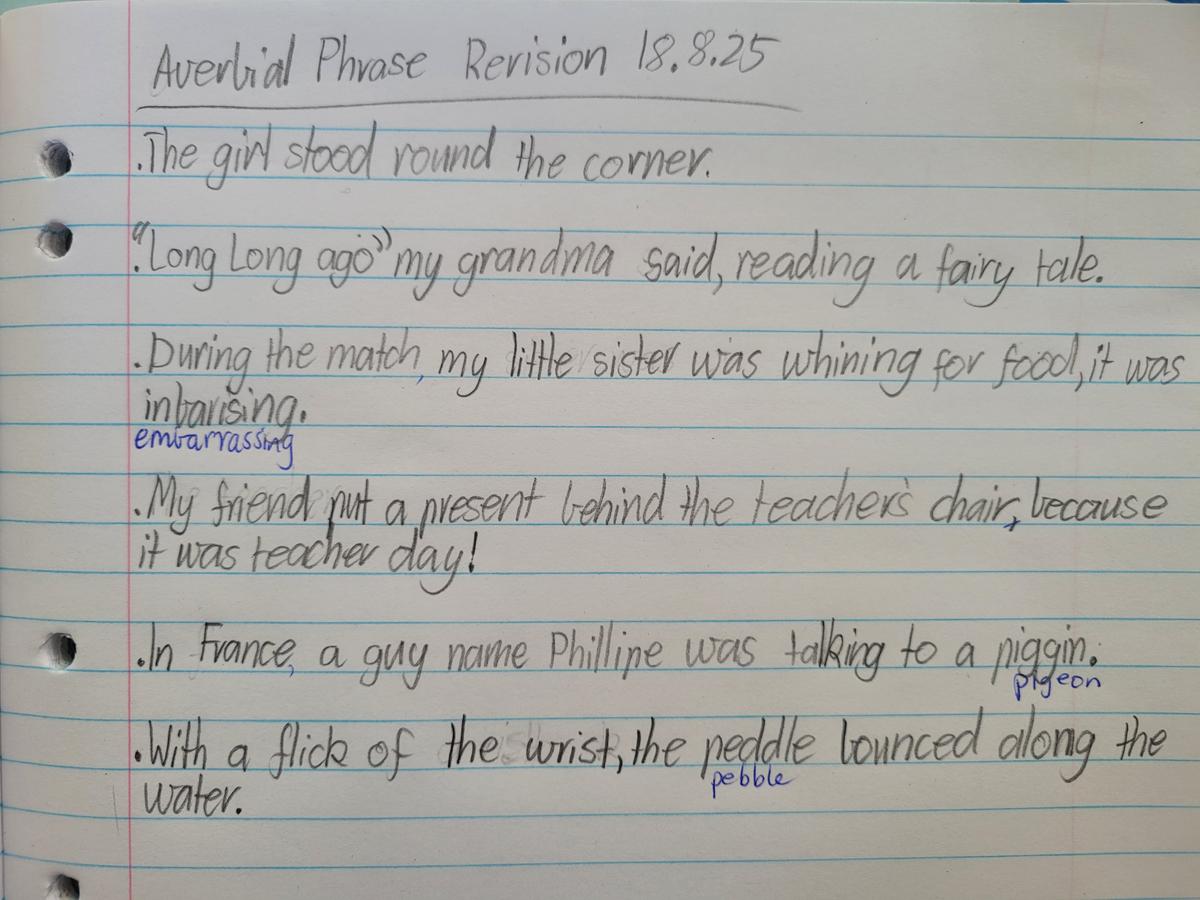 Averbial Phrase Revision 18.8.25
.The girl stood round the corner.
."Long Long ago" my grandma said, reading a fairy tale.
.During the match, my little sister was whining for food, it was
inbarising.
embarrassing
.My friend put a present behind the teacher's chair, because
it was teacher day!
.In France, a guy name Phillipe was talking to a piggin.
pigeon
.With a flick of the wrist, the peddle bounced along the
pebble
water.